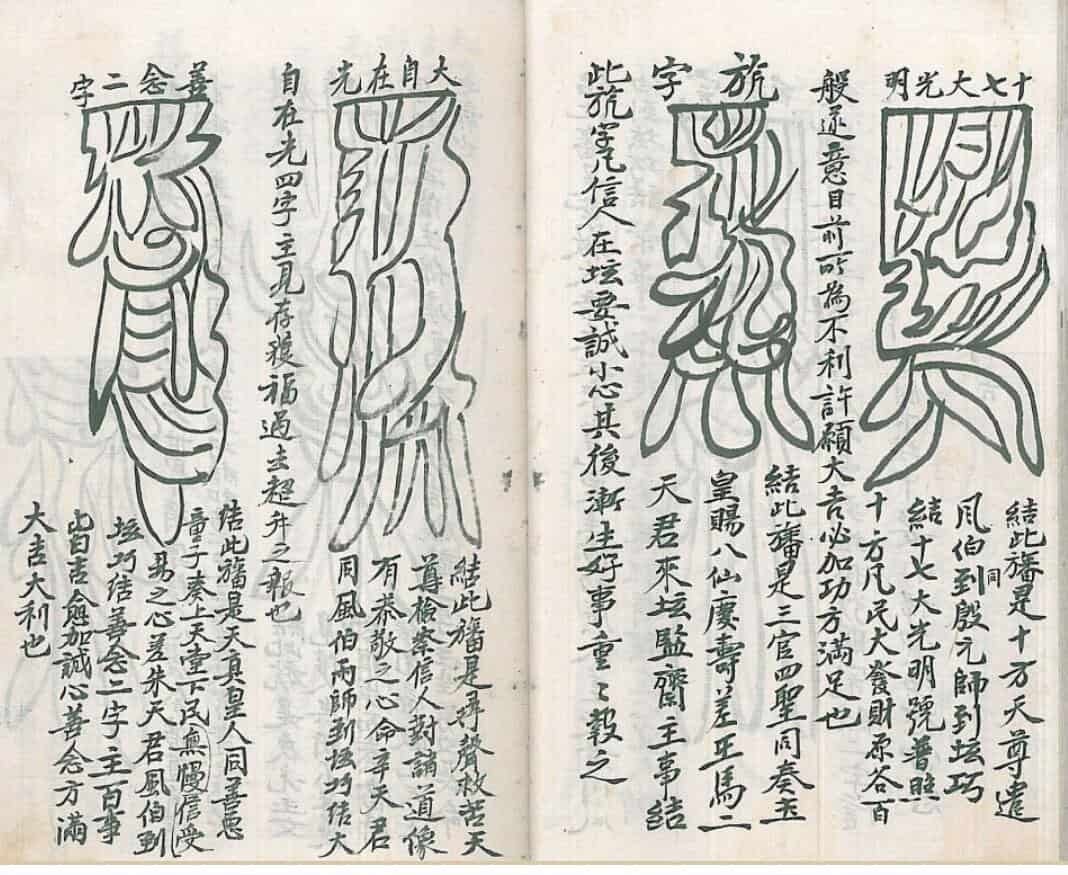 十七大光明
結此旛是十方天尊遣
風伯到同殷元帥到坛巧
結十七大光明號普照
十方凡民大發財源答百
般遂意目前所為不利許願大吉必加功方滿足也
字
結此旛是三官四聖同奏玉
皇賜八仙慶壽差王馬二
天君來坛監齋主事結
此字凡信人在坛要誠小心其後漸生好事重〻報之
大自在光
結此旛是尋聲救苦天
尊檢察信人對誦道像
有恭敬之心命辛天君
同風伯雨師到坛巧结大
自在光四字主見存獲福過去超升之報也
善念二字
结此旛是天真皇人同善惡
童子奏上天下民無慢信受
易之心差朱天君風伯到
坛巧结善念二字主百事
皆吉愈加誠心善念方滿
大吉大利也